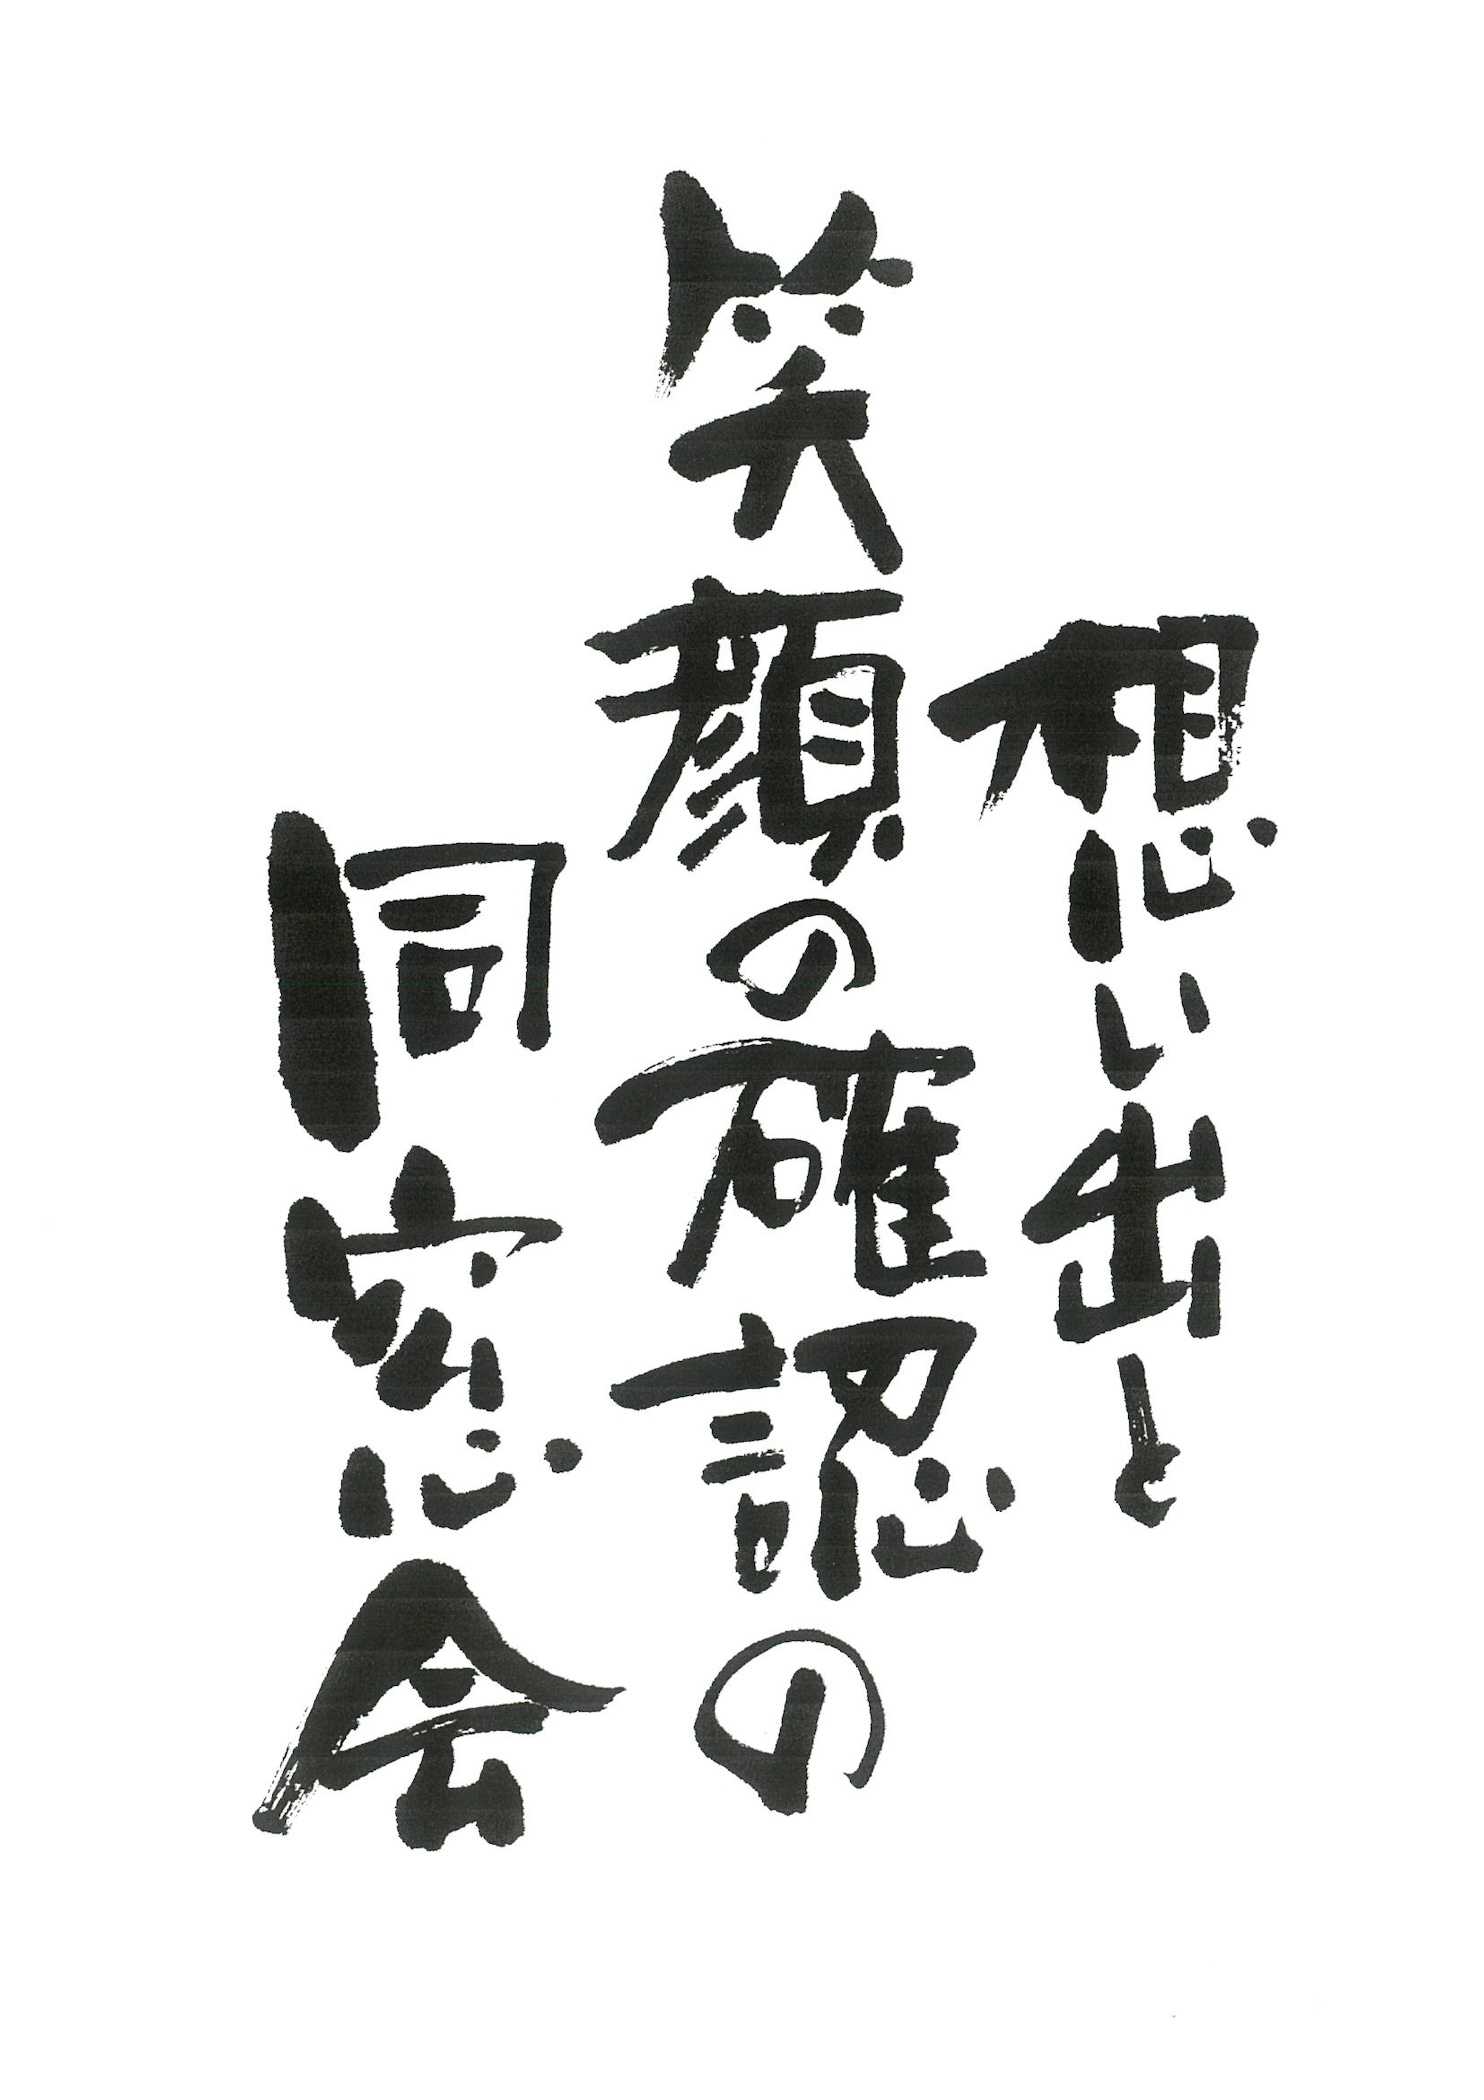 想い出と
笑顔の確認の
同窓会